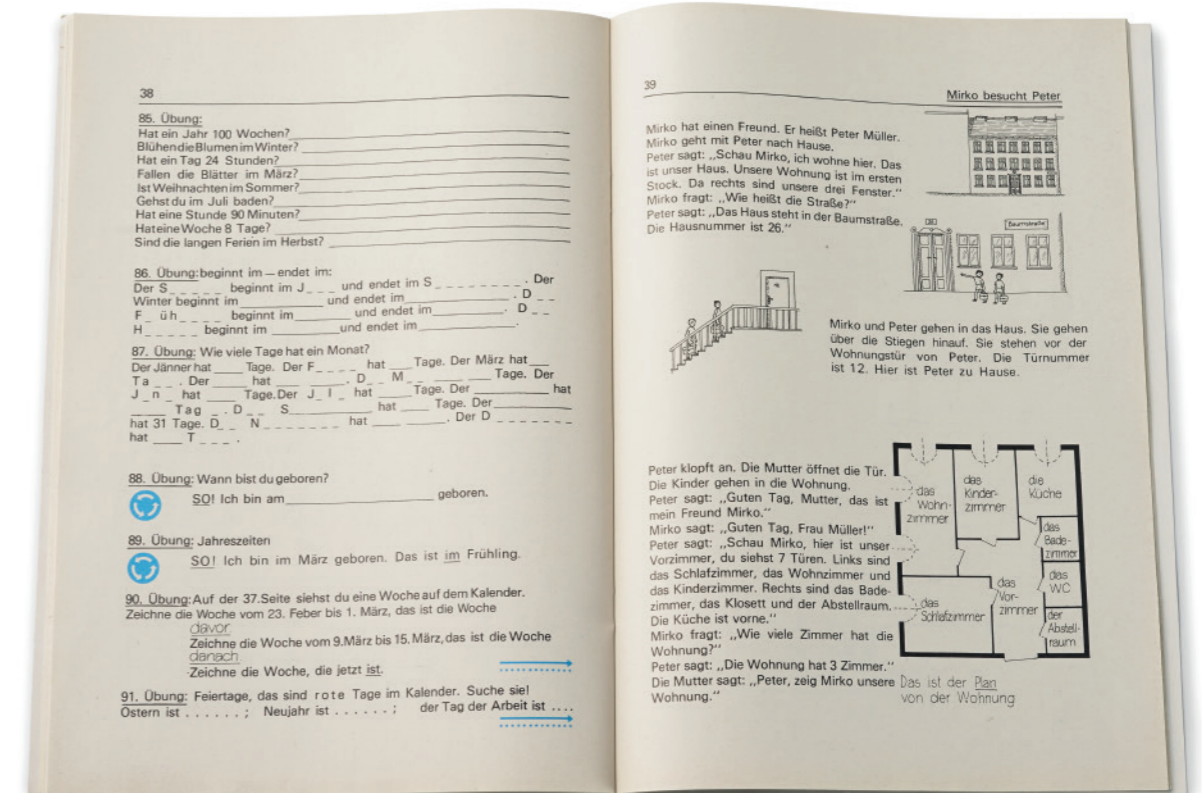 38
85. Übung:
Hat ein Jahr 100 Wochen?
Blühen die Blumen im Winter?
Hat ein Tag 24 Stunden?
Fallen die Blätter im März?
Ist Weihnachten im Sommer?
Gehst du im Juli baden?
Hat eine Stunde 90 Minuten?
Hat eine Woche 8 Tage?
Sind die langen Ferien im Herbst?
86. Übung: beginnt im – endet im:
Der S_____ beginnt im J___ und endet im S________. Der
Winter beginnt im __________ und endet im ____________. D__
F_üh____ beginnt im ________ und endet im __________. D__
H_____ beginnt im ________ und endet im ___________.
87. Übung: Wie viele Tage hat ein Monat?
Der Jänner hat ___ Tage. Der F____ hat ___ Tage. Der März hat ___
Ta__. Der ____ hat ___ ____. D__ M__ ___ ___ Tage. Der
J_n_ hat ___ Tage. Der J_l_ hat ___ Tage. Der ________ hat
____ Tag_. D__ S_________ hat ___ Tage. Der ________
hat 31 Tage. D__ N_______ hat ___ _____. Der D_______
hat ___ T___.
88. Übung: Wann bist du geboren?
SO! Ich bin am ____________________ geboren.
89. Übung: Jahreszeiten
SO! Ich bin im März geboren. Das ist im Frühling.
90. Übung: Auf der 37. Seite siehst du eine Woche auf dem Kalender.
Zeichne die Woche vom 23. Feber bis 1. März, das ist die Woche
davor.
Zeichne die Woche vom 9. März bis 15. März, das ist die Woche
danach.
Zeichne die Woche, die jetzt ist.
91. Übung: Feiertage, das sind rote Tage im Kalender. Suche sie!
Ostern ist . . . . . . ; Neujahr ist . . . . . . ; der Tag der Arbeit ist ....
39
Mirko besucht Peter
Mirko hat einen Freund. Er heißt Peter Müller.
Mirko geht mit Peter nach Hause.
Peter sagt: „Schau Mirko, ich wohne hier. Das
ist unser Haus. Unsere Wohnung ist im ersten
Stock. Da rechts sind unsere drei Fenster."
Mirko fragt: „Wie heißt die Straße?"
Peter sagt: „Das Haus steht in der Baumstraße.
Die Hausnummer ist 26."
26
Baumstraße
Mirko und Peter gehen in das Haus. Sie gehen
über die Stiegen hinauf. Sie stehen vor der
Wohnungstür von Peter. Die Türnummer
ist 12. Hier ist Peter zu Hause.
Peter klopft an. Die Mutter öffnet die Tür.
Die Kinder gehen in die Wohnung.
Peter sagt: „Guten Tag, Mutter, das ist
mein Freund Mirko."
Mirko sagt: „Guten Tag, Frau Müller!"
Peter sagt: „Schau Mirko, hier ist unser
Vorzimmer, du siehst 7 Türen. Links sind
das Schlafzimmer, das Wohnzimmer und
das Kinderzimmer. Rechts sind das Bade-
zimmer, das Klosett und der Abstellraum.
Die Küche ist vorne."
Mirko fragt: „Wie viele Zimmer hat die
Wohnung?"
Peter sagt: „Die Wohnung hat 3 Zimmer."
Die Mutter sagt: „Peter, zeig Mirko unsere
Wohnung."
das
Wohn-
zimmer
das
Kinder-
zimmer
die
Küche
das
Bade-
zimmer
das
WC
das
Vor-
zimmer
das
Schlafzimmer
der
Abstell-
raum
Das ist der Plan
von der Wohnung